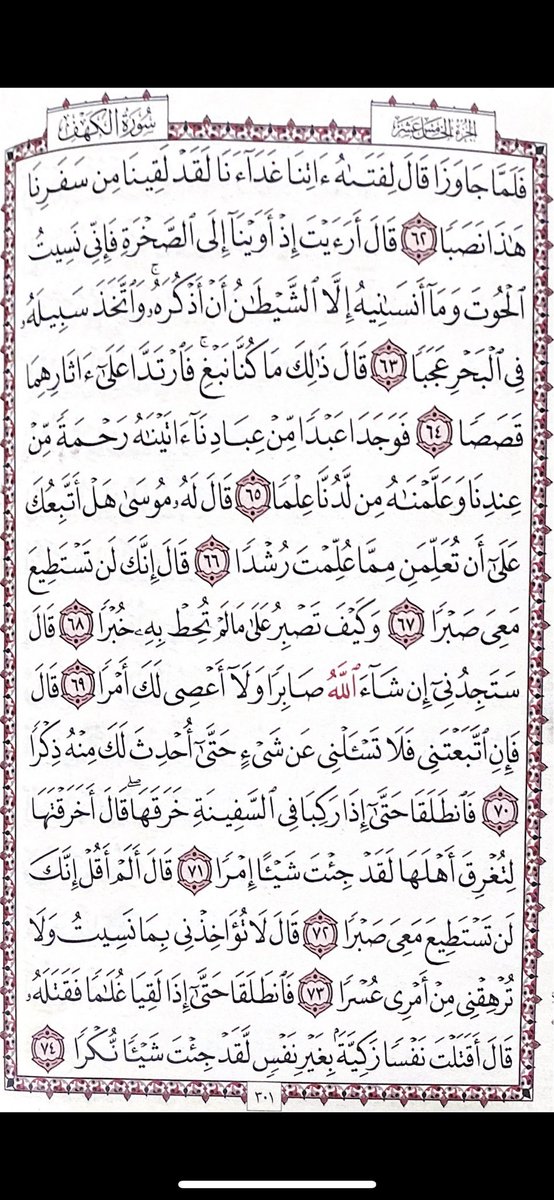 الجُزْءُ الخَامِسَ عَشَرَ
سُورَةُ الكَهْفِ
فَلَمَّا جَاوَزَا قَالَ لِفَتَىٰهُ ءَاتِنَا غَدَآءَنَا لَقَدْ لَقِينَا مِن سَفَرِنَا
هَٰذَا نَصَبًا ٦٢ قَالَ أَرَءَيْتَ إِذْ أَوَيْنَآ إِلَى ٱلصَّخْرَةِ فَإِنِّي نَسِيتُ
ٱلْحُوتَ وَمَآ أَنسَىٰنِيهُ إِلَّا ٱلشَّيْطَٰنُ أَنْ أَذْكُرَهُۥۚ وَٱتَّخَذَ سَبِيلَهُۥ
فِي ٱلْبَحْرِ عَجَبًا ٦٣ قَالَ ذَٰلِكَ مَا كُنَّا نَبْغِۚ فَٱرْتَدَّا عَلَىٰٓ ءَاثَارِهِمَا
قَصَصًا ٦٤ فَوَجَدَا عَبْدًا مِّنْ عِبَادِنَآ ءَاتَيْنَٰهُ رَحْمَةً مِّنْ
عِندِنَا وَعَلَّمْنَٰهُ مِن لَّدُنَّا عِلْمًا ٦٥ قَالَ لَهُۥ مُوسَىٰ هَلْ أَتَّبِعُكَ
عَلَىٰٓ أَن تُعَلِّمَنِ مِمَّا عُلِّمْتَ رُشْدًا ٦٦ قَالَ إِنَّكَ لَن تَسْتَطِيعَ
مَعِيَ صَبْرًا ٦٧ وَكَيْفَ تَصْبِرُ عَلَىٰ مَا لَمْ تُحِطْ بِهِۦ خُبْرًا ٦٨ قَالَ
سَتَجِدُنِيٓ إِن شَآءَ ٱللَّهُ صَابِرًا وَلَآ أَعْصِي لَكَ أَمْرًا ٦٩ قَالَ
فَإِنِ ٱتَّبَعْتَنِي فَلَا تَسْـَٔلْنِي عَن شَيْءٍ حَتَّىٰٓ أُحْدِثَ لَكَ مِنْهُ ذِكْرًا
٧٠ فَٱنطَلَقَا حَتَّىٰٓ إِذَا رَكِبَا فِي ٱلسَّفِينَةِ خَرَقَهَاۖ قَالَ أَخَرَقْتَهَا
لِتُغْرِقَ أَهْلَهَا لَقَدْ جِئْتَ شَيْـًٔا إِمْرًا ٧١ قَالَ أَلَمْ أَقُلْ إِنَّكَ
لَن تَسْتَطِيعَ مَعِيَ صَبْرًا ٧٢ قَالَ لَا تُؤَاخِذْنِي بِمَا نَسِيتُ وَلَا
تُرْهِقْنِي مِنْ أَمْرِي عُسْرًا ٧٣ فَٱنطَلَقَا حَتَّىٰٓ إِذَا لَقِيَا غُلَٰمًا فَقَتَلَهُۥ
قَالَ أَقَتَلْتَ نَفْسًا زَكِيَّةًۢ بِغَيْرِ نَفْسٍ لَّقَدْ جِئْتَ شَيْـًٔا نُّكْرًا ٧٤
٣٠١